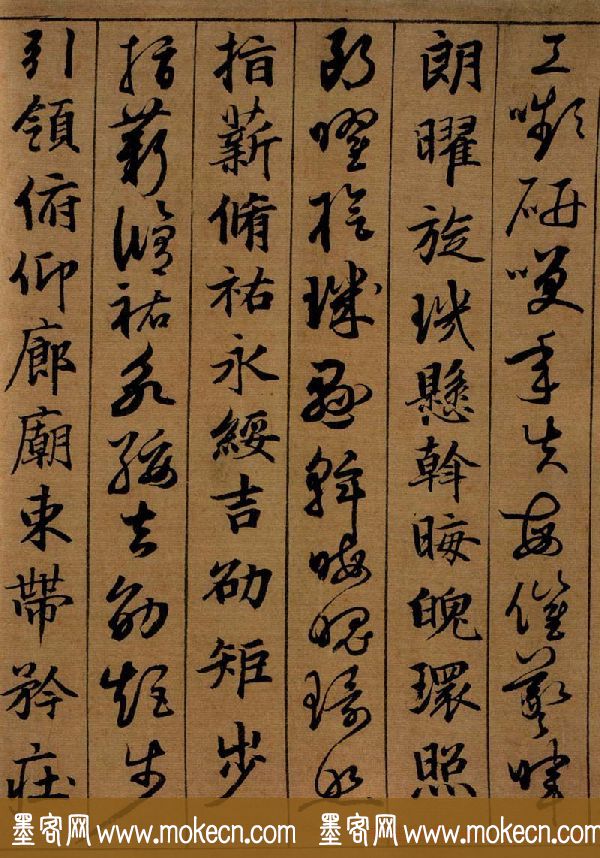 工嚬研咲年矢每催羲暉
朗曜旋璣懸斡晦魄環照
朗曜旋璣懸斡晦魄環照
指薪脩祐永綏吉劭矩步
指薪脩祐永綏吉劭矩步
引領俯仰廊廟束帶矜庄
墨客网 www.mokecn.com 墨客网 www.mokecn.com